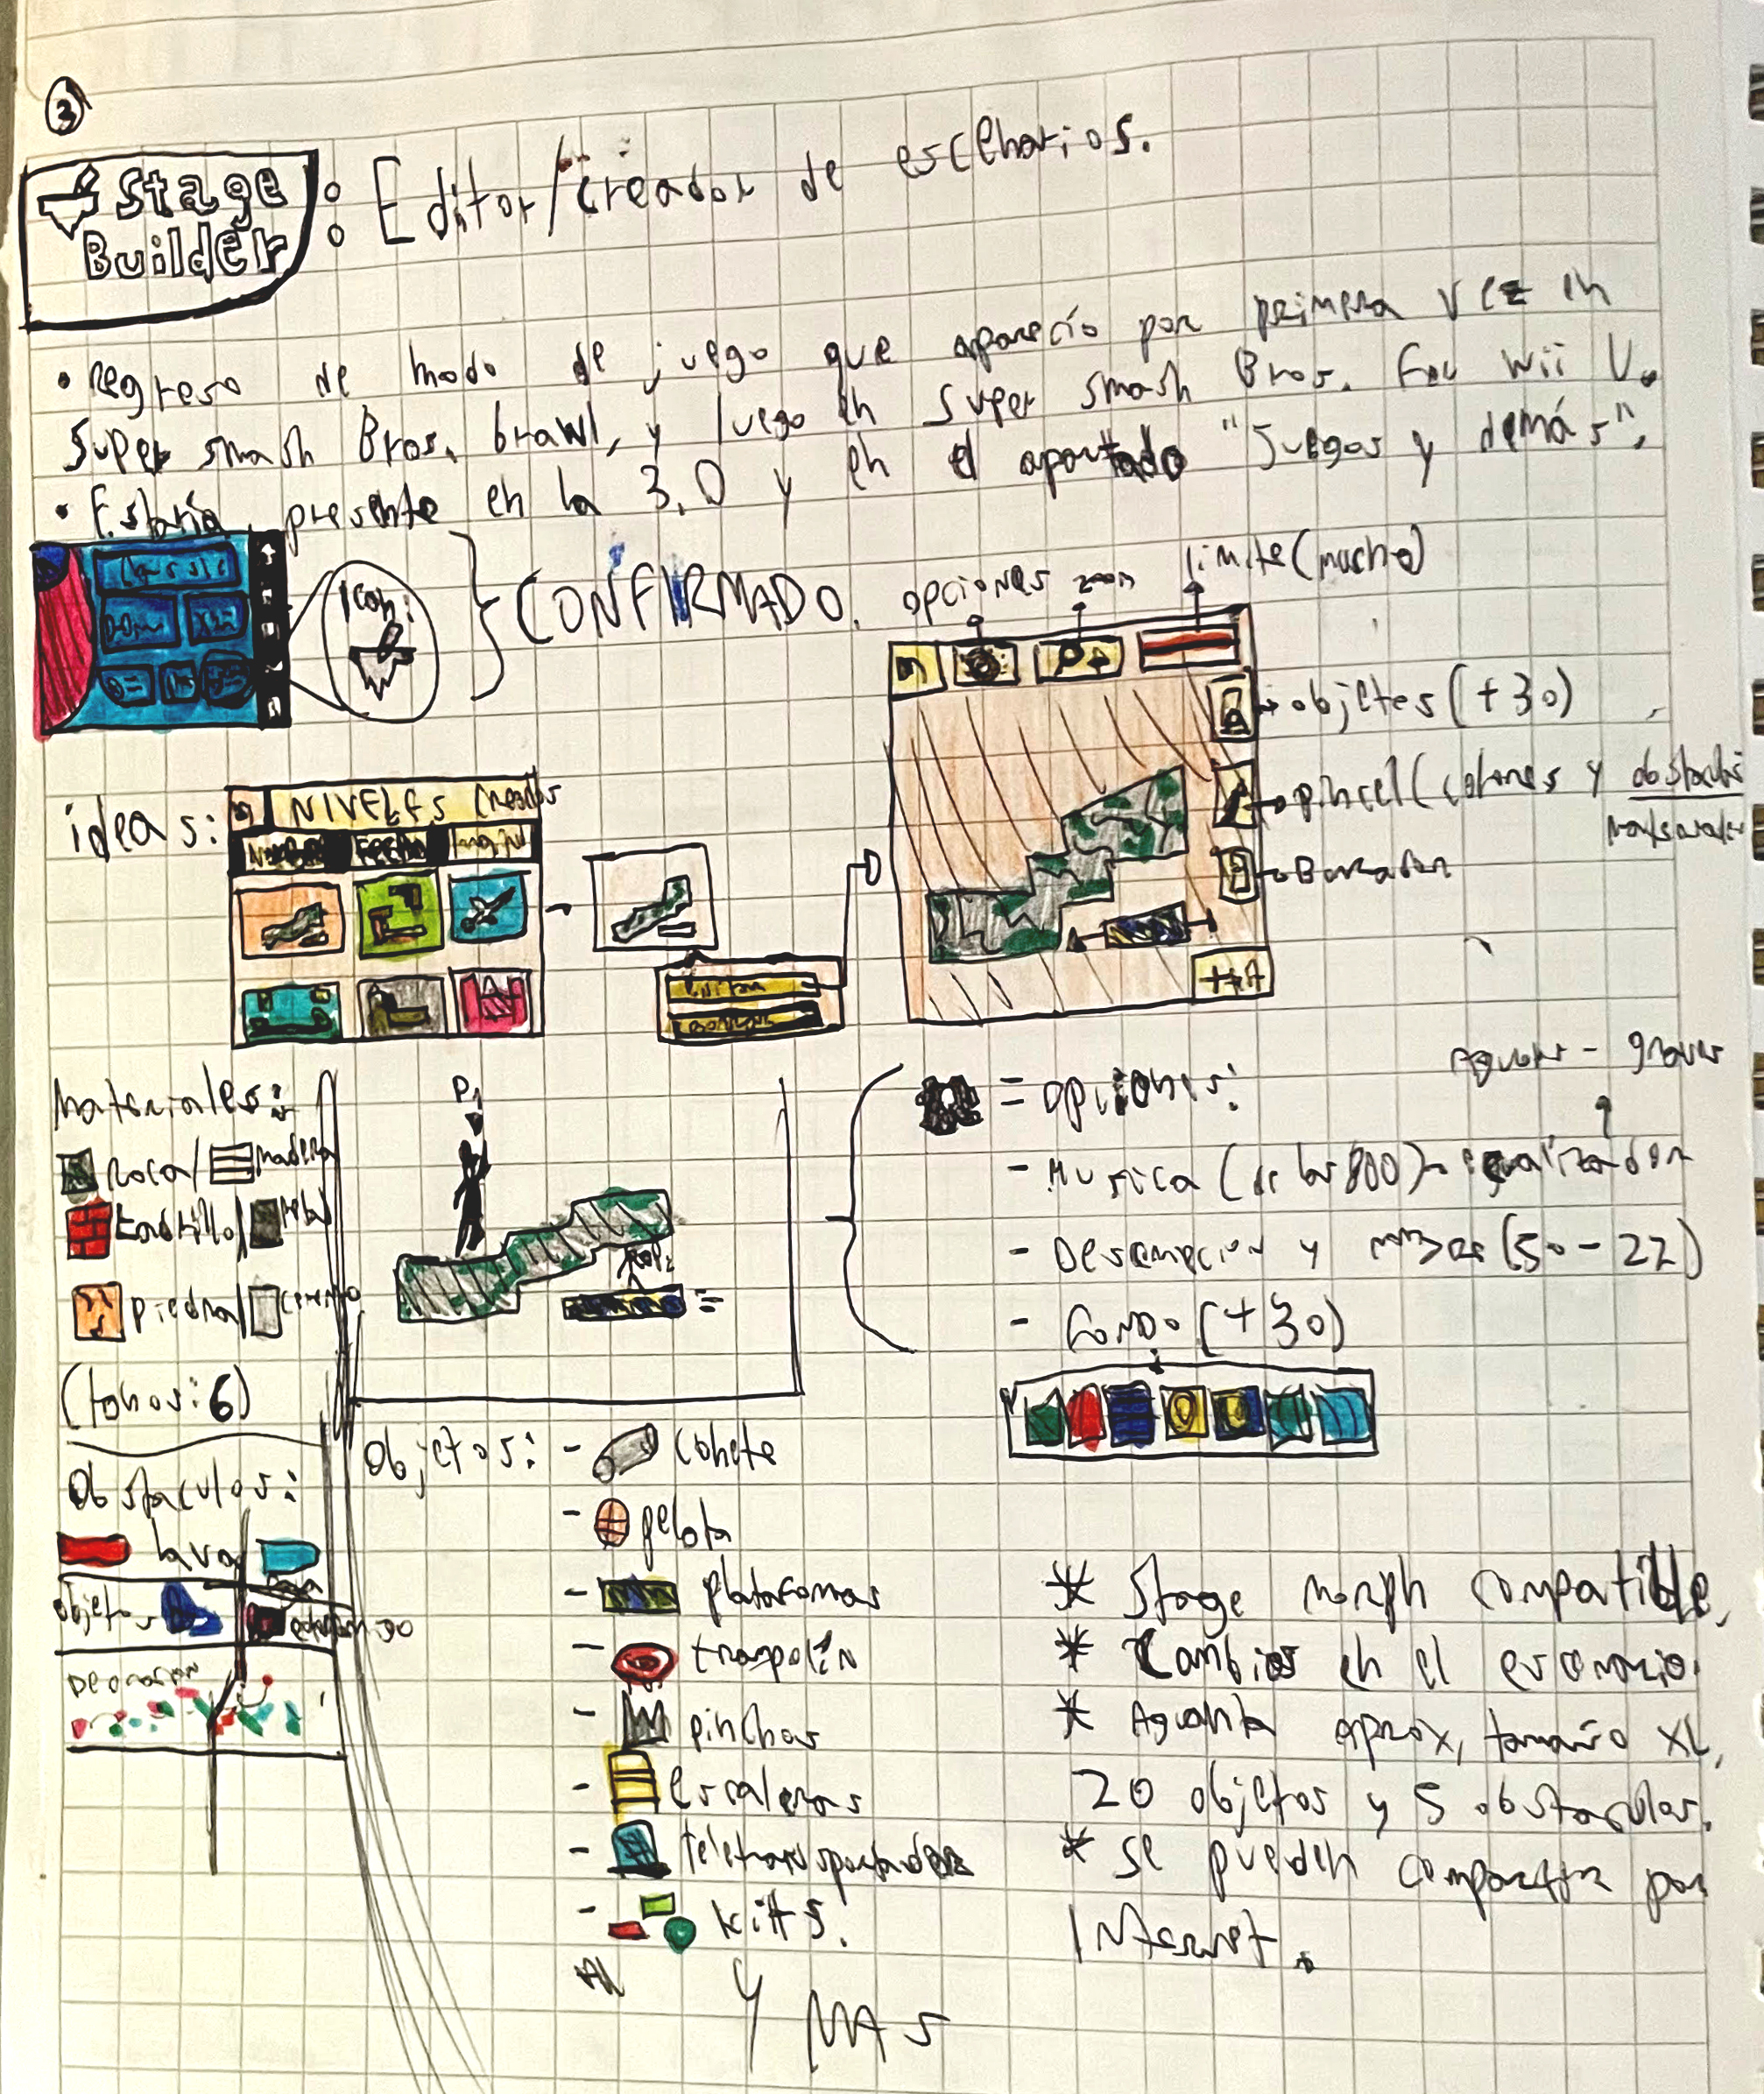 3
Stage Builder : Editor/creador de escenarios.
• Regreso de modo de juego que aparecío por primera vez en
Super smash Bros. brawl, y luego en Super smash Bros. For Wii U.
• Estaría presente en la 3.0 y en el apartado "Juegos y demás".
Classic
Icon:
CONFIRMADO.
opciones zoom límite (mucho)
objetos (+30)
pincel (colores y obstaculos
Borrador
ideas:
NIVELES Creados
Nombre Fecha
Editar
materiales:
Roca/ madera
Ladrillo/ metal
piedra/ cemento
(tonos: 6)
P1
= opciones:
Agudos - graves
- Musica (de las 800) → ecualizador
- Descripcion y nombre (50-22)
- Fondo (+30)
Obstaculos:
lava
objetos
Decoracion
Objetos: - Cohete
- pelota
- plataformas
- trampolín
- pinchos
- escaleras
- teletransportador
- kitts.
Y MAS
* Stage morph compatible.
* Cambios en el escenario.
* Aguanta aprox. tamaño XL,
20 objetos y 5 obstaculos.
* Se pueden compartir por
Internet.